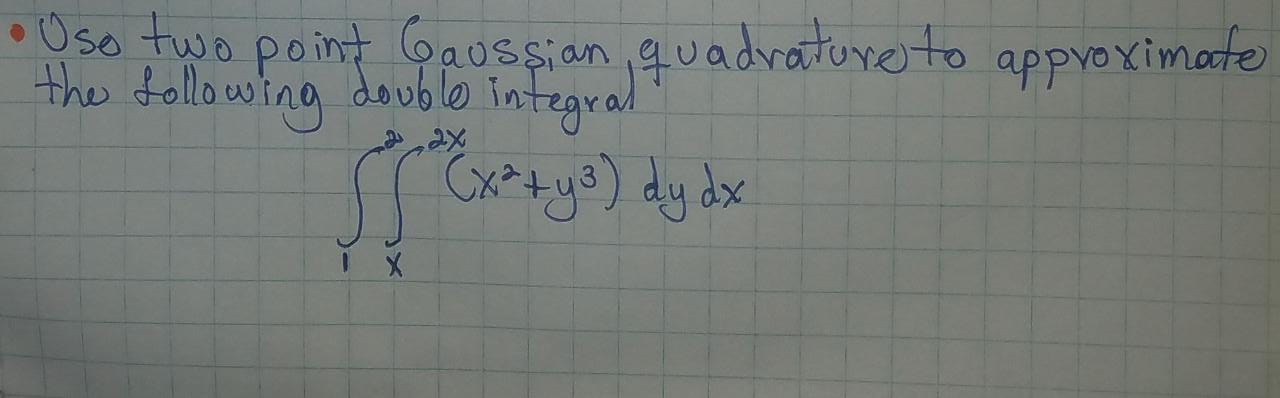 • Use two point Gaussian quadrature to approximate
the following double integral
∫₁² ∫ₓ²ˣ (x² + y³) dy dx